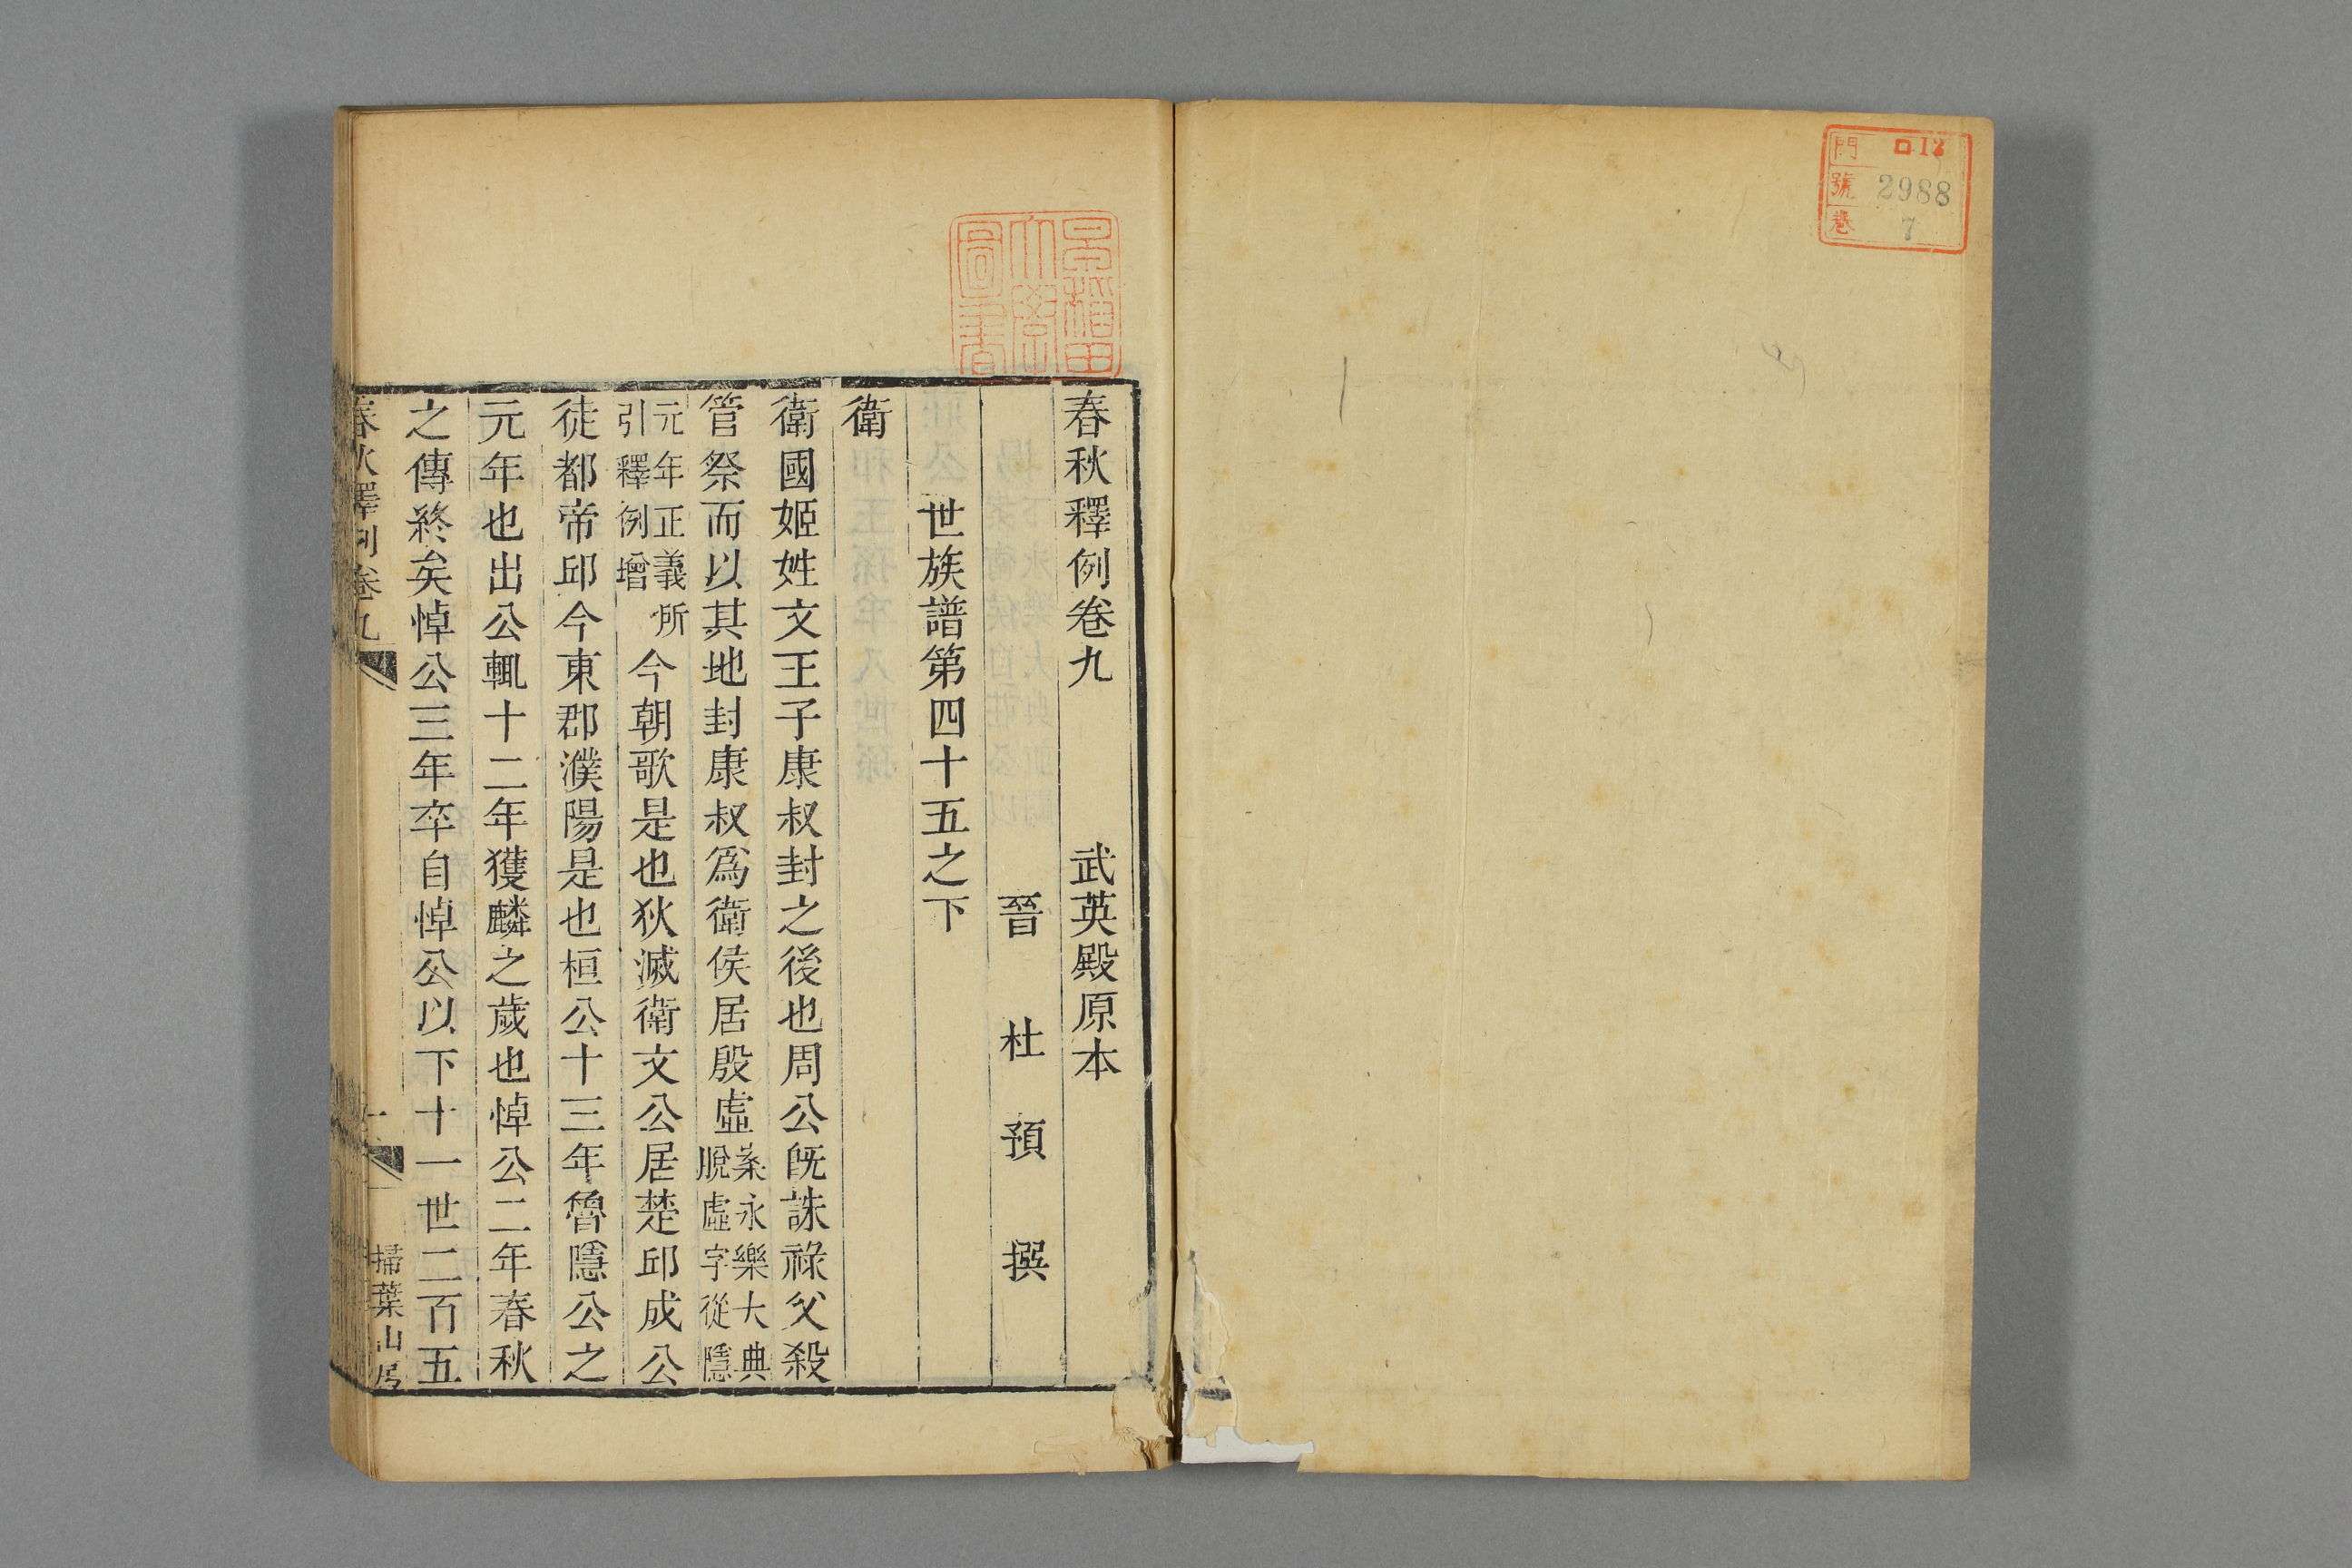 門 ロ12
號 2988
巻 7
早稲田
大學
圖書
春秋釋例卷九 武英殿原本
晉 杜 預 撰
世族譜第四十五之下
衛
衛國姬姓文王子康叔封之後也周公旣誅祿父殺
管祭而以其地封康叔爲衛侯居殷虛案永樂大典
脫虛字從隱
元年正義所
引釋例增
今朝歌是也狄滅衛文公居楚邱成公
徒都帝邱今東郡濮陽是也桓公十三年魯隱公之
元年也出公輒十二年獲麟之歲也悼公二年春秋
之傳終矣悼公三年卒自悼公以下十一世二百五
春秋釋例卷九
一
掃葉山房